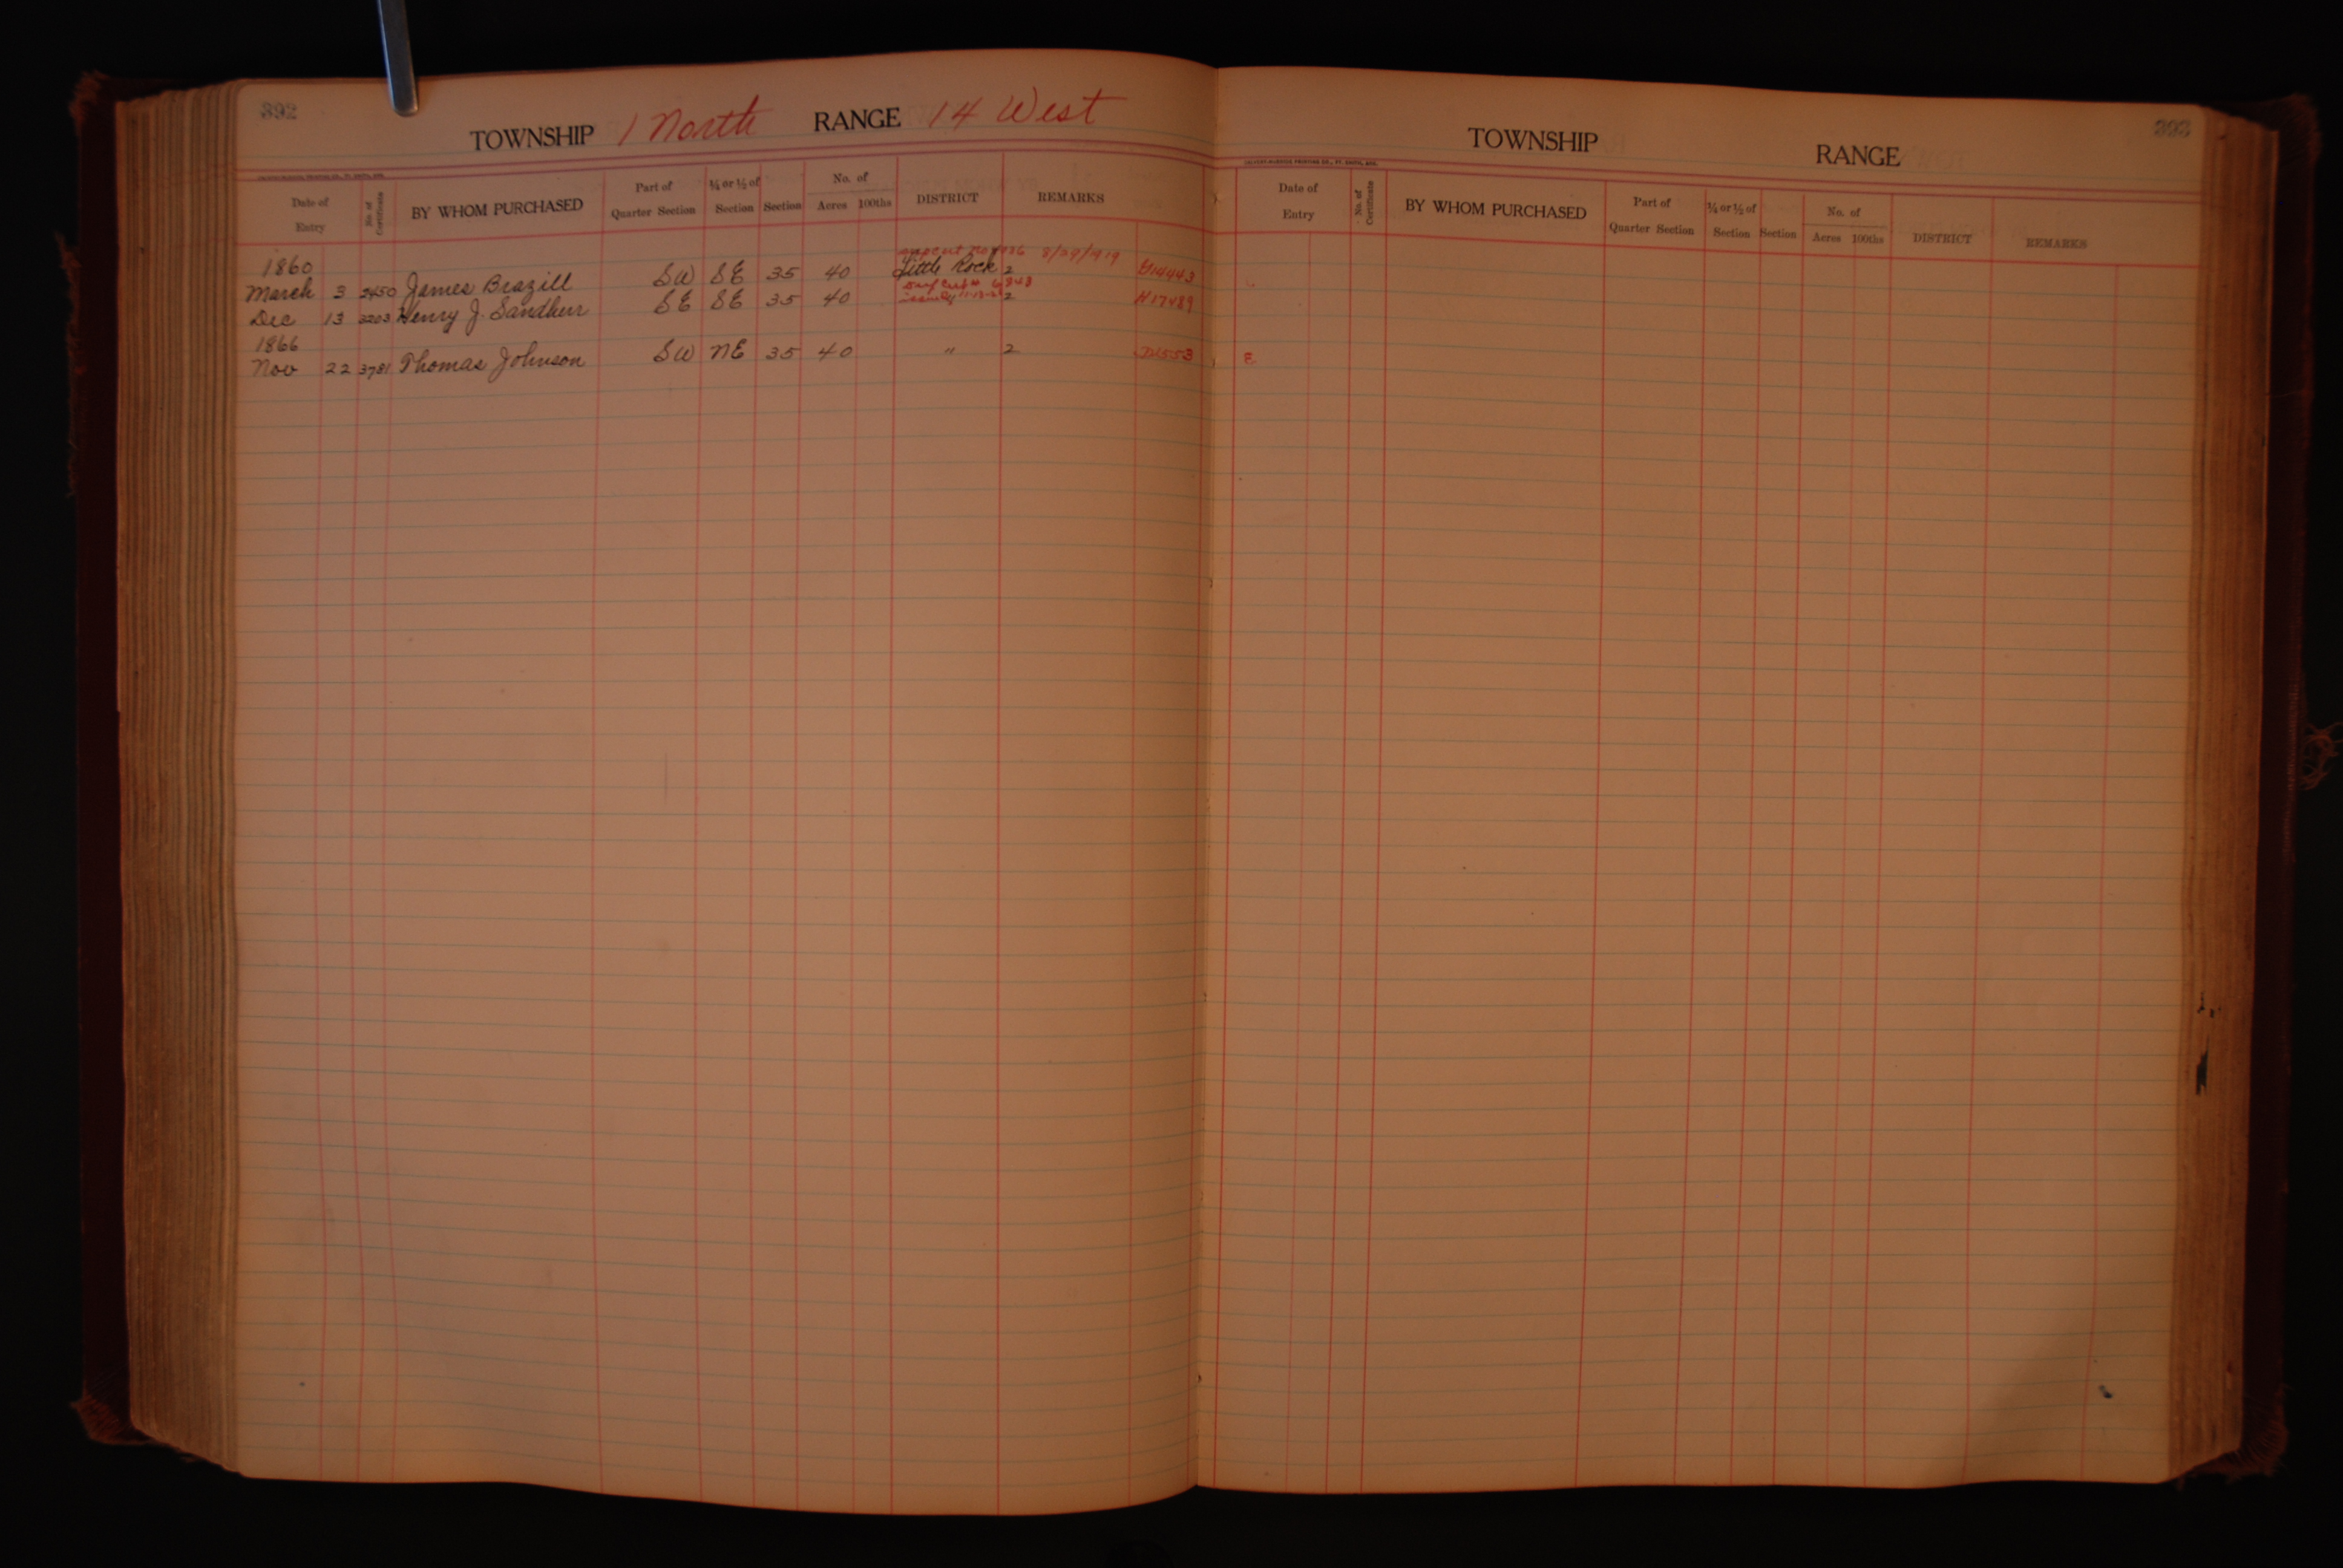 392
TOWNSHIP 1 North RANGE 14 West
Date of Entry No. of Certificate BY WHOM PURCHASED Part of Quarter Section ¼ or ½ of Section Section No. of Acres 100ths DISTRICT REMARKS
8/29/1919
1860 Little Rock 2
March 3 2450 James Brazill SW SE 35 40
issued 2
Dec 13 3203 Henry J. Sandherr SE SE 35 40 H17489
1866
Nov 22 3781 Thomas Johnson SW NE 35 40 " 2
393
TOWNSHIP RANGE
Date of Entry No. of Certificate BY WHOM PURCHASED Part of Quarter Section ¼ or ½ of Section Section No. of Acres 100ths DISTRICT REMARKS
E